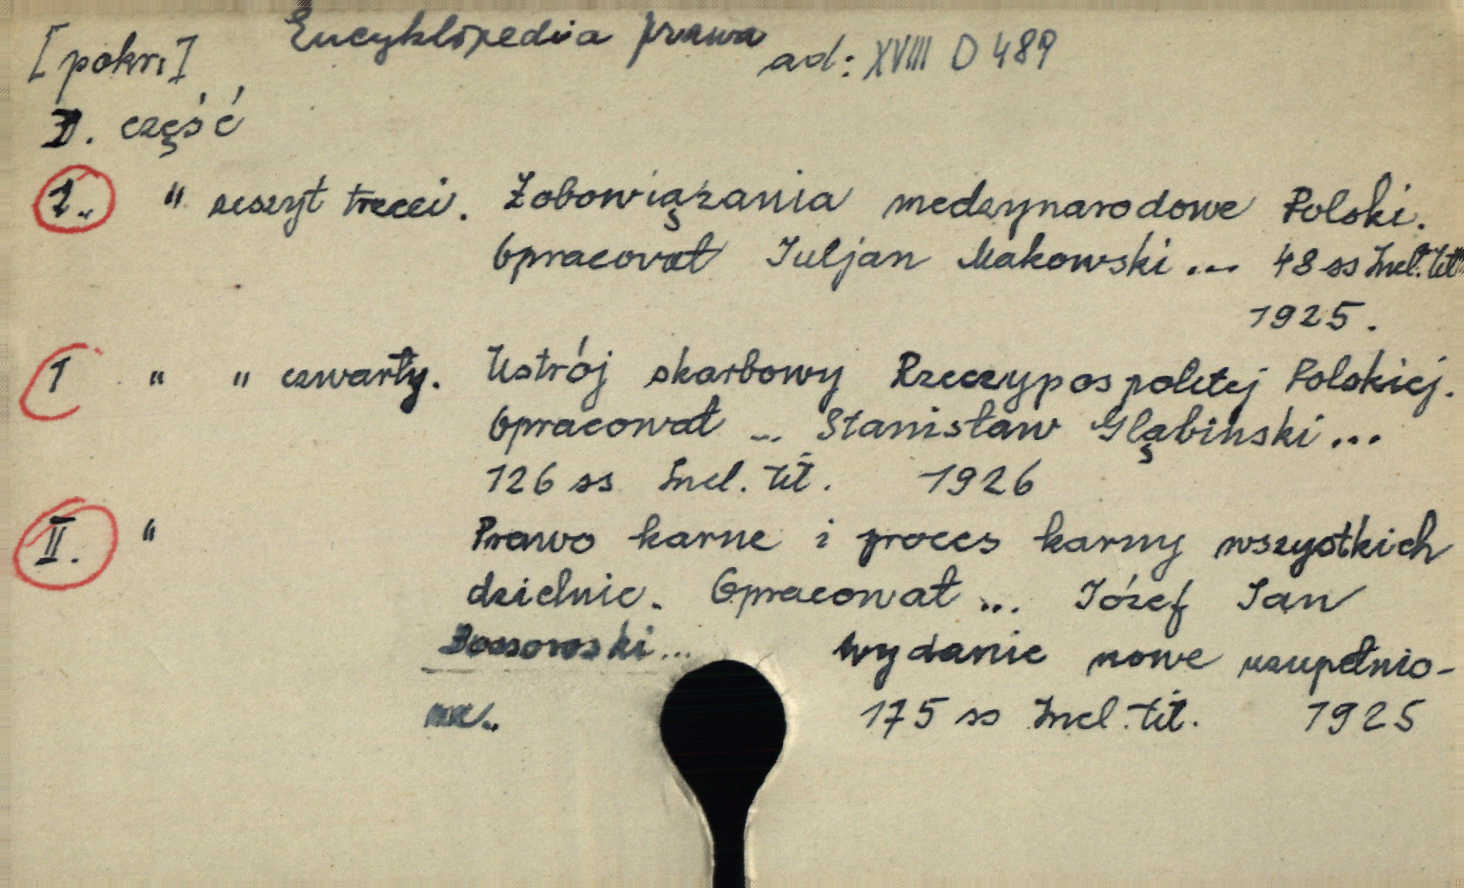 [pokr.] Encyklopedia prawa ad: XVIII D 489
I. część
I. " zeszyt trzeci. Zobowiązania medzynarodowe Polski.
Opracował Juljan Makowski ... 48 ss Incl. tit
1925.
I " " czwarty. Ustrój skarbowy Rzeczypospolitej Polskiej.
Opracował ... Stanisław Głąbinski ...
126 ss Incl. tit. 1926
II. " Prawo karne i proces karny wszystkich
dzielnic. Opracował ... Józef Jan
Bossowski ... wydanie nowe uzupełnio-
ne. 175 ss Incl. tit. 1925